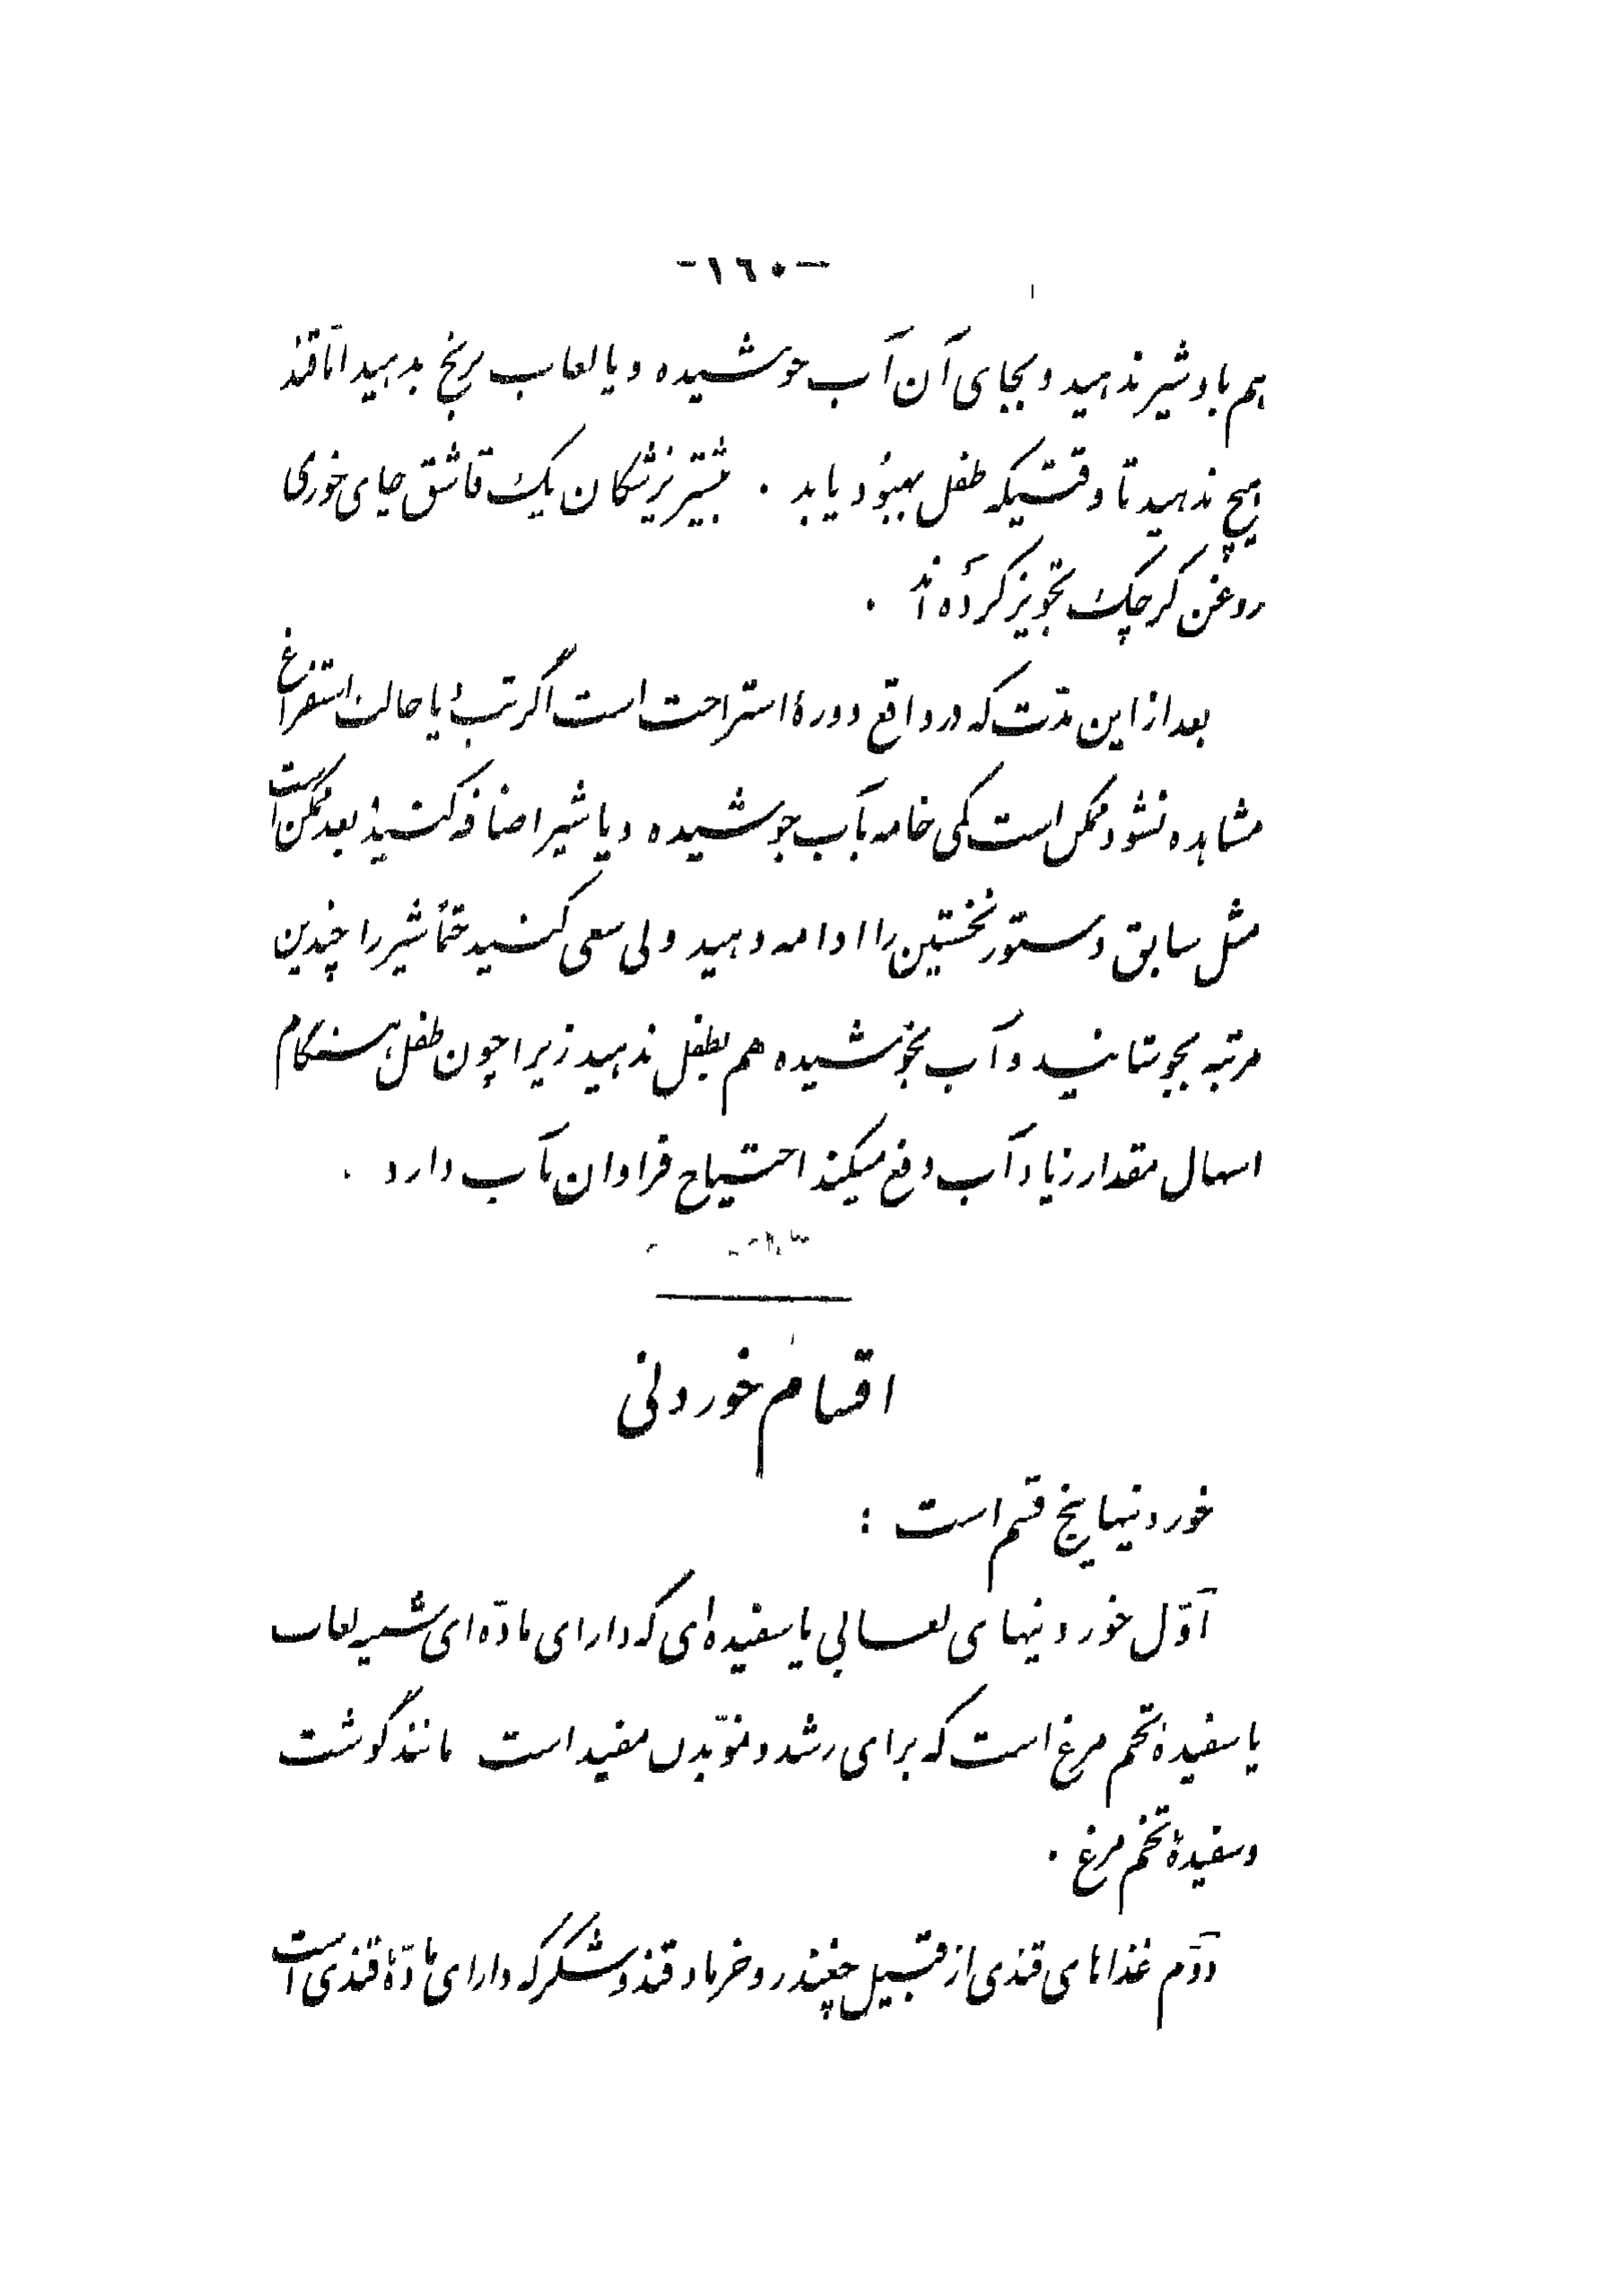 -١٦٠-
هم باو شیر ندهید و بجای آن آب جوشیده و یا لعاب برنج بدهید امّا قند
هیچ ندهید تا وقتیکه طفل بهبود یابد . بیشتر پزشکان یک قاشق چای خوری
روغن کرچک تجویز کرده اند .
بعد از این مدّت که در واقع دورهٔ استراحت است اگر تب یا حالت استفراغ
مشاهده نشود ممکن است کمی خامه بآب جوشیده و یا شیر اضافه کنید بعد ممکن است
مثل سابق دستور نخستین را ادامه دهید ولی سعی کنید حتماً شیر را چندین
مرتبه بجوشانید و آب نجوشیده هم بطفل ندهید زیرا چون طفل هنگام
اسهال مقدار زیاد آب دفع میکند احتیاج فراوان بآب دارد .
اقسام خوردنی
خوردنیها پنج قسم است :
اوّل خوردنیهای لعابی یا سفیده‌ای که دارای مادّه‌ای شبیه لعاب
یا سفیدهٔ تخم مرغ است که برای رشد و نموّ بدن مفید است مانند گوشت
و سفیدهٔ تخم مرغ .
دوّم غذاهای قندی از قبیل چغندر و خرما و قند و شکر که دارای مادّهٔ قندی است